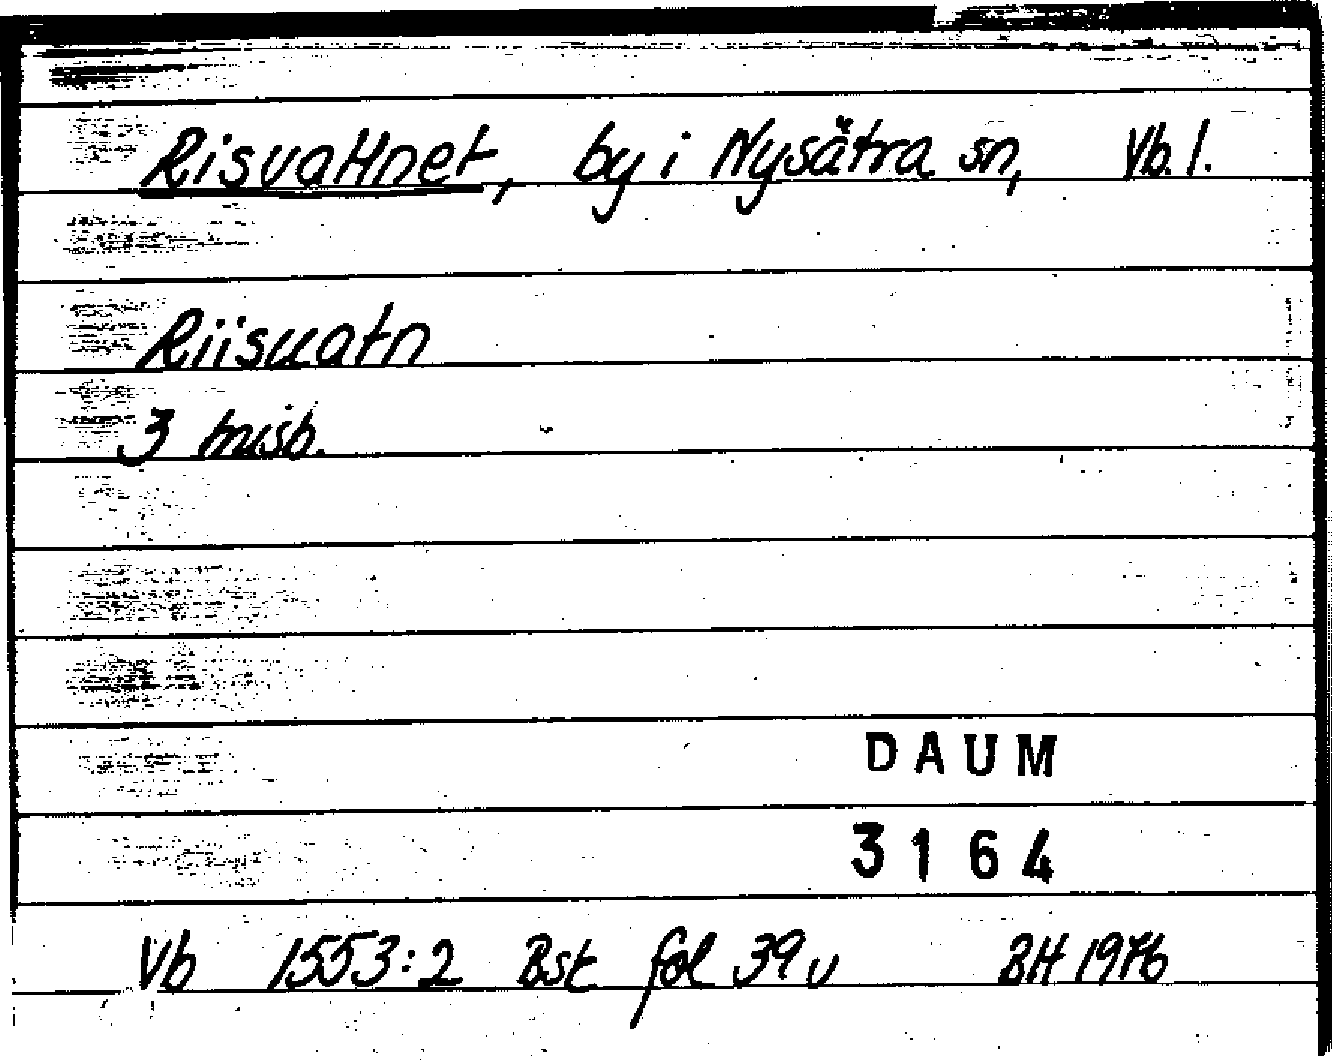 Risvattnet, by i Nysätra sn, Vb. l.
Riisuatn
3 misb.
DAUM
3164
Vb 1553:2 Bst fol 39 v BH 1976